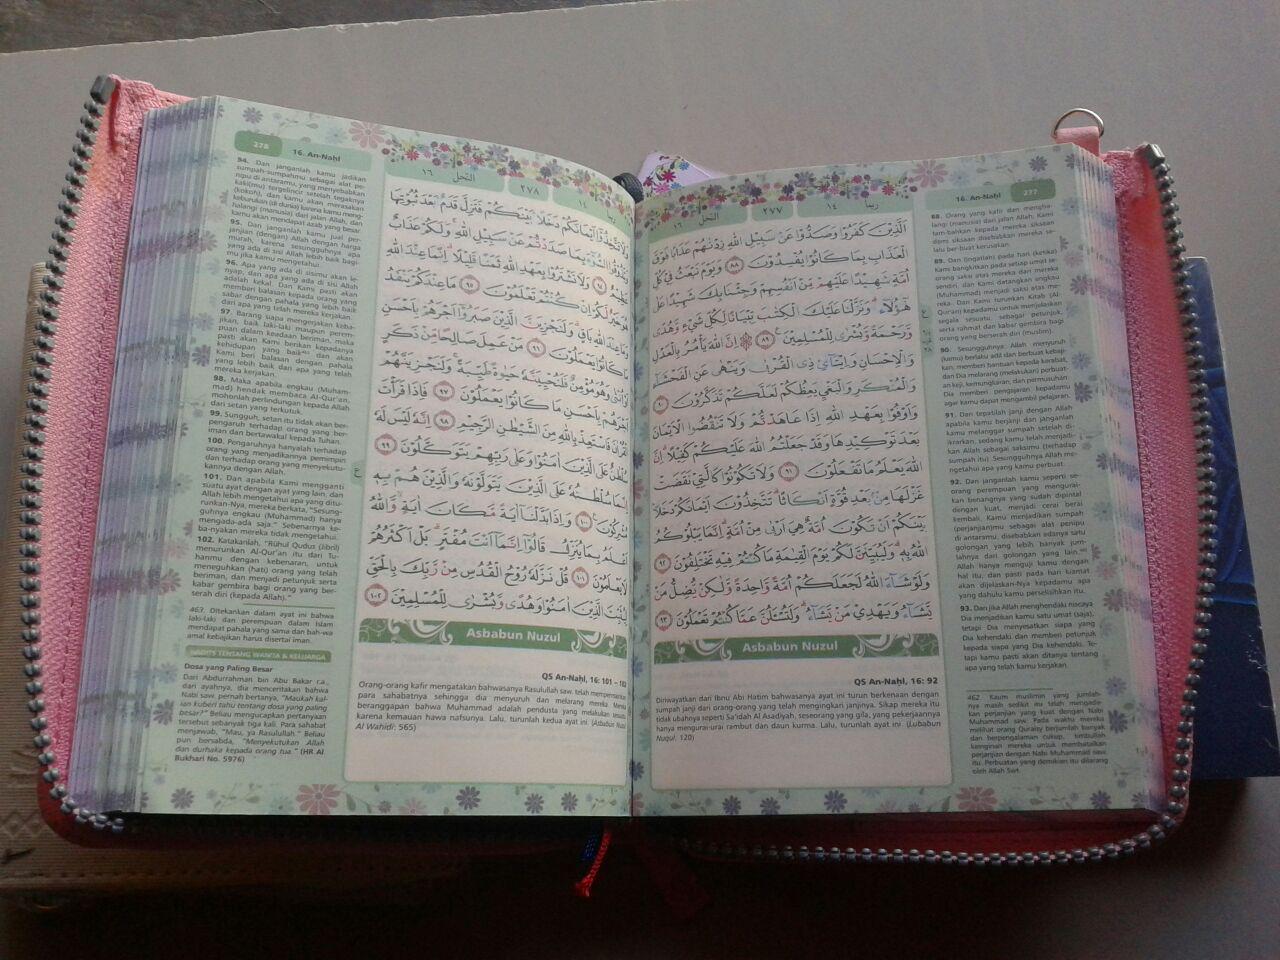 277
16. An-Naḥl
88. Orang yang kafir dan mengha-
langi (manusia) dari jalan Allah, Kami
tam-bahkan kepada mereka siksaan
demi siksaan disebabkan mereka se-
lalu ber-buat kerusakan.
89. Dan (ingatlah) pada hari (ketika)
Kami bangkitkan pada setiap umat se-
orang saksi atas mereka dari mereka
sendiri, dan Kami datangkan engkau
(Muhammad) menjadi saksi atas me-
reka. Dan Kami turunkan Kitab (Al-
Qur'an) kepadamu untuk menjelaskan
segala sesuatu, sebagai petunjuk,
serta rahmat dan kabar gembira bagi
orang yang berserah diri (muslim).
90. Sesungguhnya Allah menyuruh
(kamu) berlaku adil dan berbuat kebaj-
kan, memberi bantuan kepada karabat,
dan Dia melarang (melakukan) perbuat-
an keji, kemungkaran, dan permusuhan.
Dia memberi pengajaran kepadamu
agar kamu dapat mengambil pelajaran.
91. Dan tepatilah janji dengan Allah
apabila kamu berjanji dan janganlah
kamu melanggar sumpah setelah di-
ikrarkan, sedang kamu telah menjadi-
kan Allah sebagai saksimu (terhadap
sumpah itu). Sesungguhnya Allah me-
ngetahui apa yang kamu perbuat.
92. Dan janganlah kamu seperti se-
orang perempuan yang mengurai-
kan benangnya yang sudah dipintal
dengan kuat, menjadi cerai berai
kembali. Kamu menjadikan sumpah
(perjanjian)mu sebagai alat penipu
di antaramu, disebabkan adanya satu
golongan yang lebih banyak jum-
lahnya dari golongan yang lain.
Allah hanya menguji kamu dengan
hal itu, dan pasti pada hari kiamat
akan dijelaskan-Nya kepadamu apa
yang dahulu kamu perselisihkan itu.
93. Dan jika Allah menghendaki niscaya
Dia menjadikan kamu satu umat (saja),
tetapi Dia menyesatkan siapa yang
Dia kehendaki dan memberi petunjuk
kepada siapa yang Dia kehendaki. Te-
tapi kamu pasti akan ditanya tentang
apa yang telah kamu kerjakan.
462 Kaum muslimin yang jumlah-
nya masih sedikit itu telah mengada-
kan perjanjian yang kuat dengan Nabi
Muhammad saw. Pada waktu mereka
melihat orang Quraisy berjumlah banyak
dan berpengalaman cukup, timbullah
keinginan mereka untuk membatalkan
perjanjian dengan Nabi Muhammad saw
itu. Perbuatan yang demikian itu dilarang
oleh Allah Swt.
ربما ١٤
٢٧٧
النحل ١٦
الَّذِيْنَ كَفَرُوْا وَصَدُّوْا عَنْ سَبِيْلِ اللّٰهِ زِدْنٰهُمْ عَذَابًا فَوْقَ
الْعَذَابِ بِمَا كَانُوْا يُفْسِدُوْنَ ٨٨ وَيَوْمَ نَبْعَثُ فِيْ كُلِّ
اُمَّةٍ شَهِيْدًا عَلَيْهِمْ مِّنْ اَنْفُسِهِمْ وَجِئْنَا بِكَ شَهِيْدًا عَلٰى
هٰٓؤُلَاۤءِ وَنَزَّلْنَا عَلَيْكَ الْكِتٰبَ تِبْيَانًا لِّكُلِّ شَيْءٍ وَّهُدًى
وَّرَحْمَةً وَّبُشْرٰى لِلْمُسْلِمِيْنَ ٨٩ اِنَّ اللّٰهَ يَأْمُرُ بِالْعَدْلِ
وَالْاِحْسَانِ وَاِيْتَاۤئِ ذِى الْقُرْبٰى وَيَنْهٰى عَنِ الْفَحْشَاۤءِ
وَالْمُنْكَرِ وَالْبَغْيِ يَعِظُكُمْ لَعَلَّكُمْ تَذَكَّرُوْنَ ٩٠
وَاَوْفُوْا بِعَهْدِ اللّٰهِ اِذَا عَاهَدْتُّمْ وَلَا تَنْقُضُوا الْاَيْمَانَ
بَعْدَ تَوْكِيْدِهَا وَقَدْ جَعَلْتُمُ اللّٰهَ عَلَيْكُمْ كَفِيْلًا اِنَّ
اللّٰهَ يَعْلَمُ مَا تَفْعَلُوْنَ ٩١ وَلَا تَكُوْنُوْا كَالَّتِيْ نَقَضَتْ
غَزْلَهَا مِنْۢ بَعْدِ قُوَّةٍ اَنْكَاثًا تَتَّخِذُوْنَ اَيْمَانَكُمْ دَخَلًا
بَيْنَكُمْ اَنْ تَكُوْنَ اُمَّةٌ هِيَ اَرْبٰى مِنْ اُمَّةٍ اِنَّمَا يَبْلُوْكُمُ
اللّٰهُ بِهٖ وَلَيُبَيِّنَنَّ لَكُمْ يَوْمَ الْقِيٰمَةِ مَا كُنْتُمْ فِيْهِ تَخْتَلِفُوْنَ ٩٢
وَلَوْ شَاۤءَ اللّٰهُ لَجَعَلَكُمْ اُمَّةً وَّاحِدَةً وَّلٰكِنْ يُّضِلُّ مَنْ
يَّشَاۤءُ وَيَهْدِيْ مَنْ يَّشَاۤءُ وَلَتُسْـَٔلُنَّ عَمَّا كُنْتُمْ تَعْمَلُوْنَ ٩٣
Asbabun Nuzul
QS An-Naḥl, 16: 92
Diriwayatkan dari Ibnu Abi Hatim bahwasanya ayat ini turun berkenaan dengan
sumpah janji dari orang-orang yang telah mengingkari janjinya. Sikap mereka itu
tidak ubahnya seperti Sa'idah Al Asadiyah, seseorang yang gila, yang pekerjaannya
hanya mengurai-urai rambut dan daun kurma. Lalu, turunlah ayat ini (Lubabun
Nuqul: 120)
278
16. An-Naḥl
94. Dan janganlah kamu jadikan
sumpah-sumpahmu sebagai alat pe-
nipu di antaramu, yang menyebabkan
kaki(mu) tergelincir setelah tegaknya
(kokoh), dan kamu akan merasakan
keburukan (di dunia) karena kamu meng-
halangi (manusia) dari jalan Allah, dan
kamu akan mendapat azab yang besar.
95. Dan janganlah kamu jual per-
janjian (dengan) Allah dengan harga
murah, karena sesungguhnya apa
yang ada di sisi Allah lebih baik bagi-
mu jika kamu mengetahui.
96. Apa yang ada di sisimu akan le-
nyap, dan apa yang ada di sisi Allah
adalah kekal. Dan Kami pasti akan
memberi balasan kepada orang yang
sabar dengan pahala yang lebih baik
dari apa yang telah mereka kerjakan.
97. Barang siapa mengerjakan keba-
jikan, baik laki-laki maupun perem-
puan dalam keadaan beriman, maka
pasti akan Kami berikan kepadanya
kehidupan yang baik dan akan
Kami beri balasan dengan pahala
yang lebih baik dari apa yang telah
mereka kerjakan.
98. Maka apabila engkau (Muham-
mad) hendak membaca Al-Qur'an,
mohonlah perlindungan kepada Allah
dari setan yang terkutuk.
99. Sungguh, setan itu tidak akan ber-
pengaruh terhadap orang yang ber-
iman dan bertawakal kepada Tuhan.
100. Pengaruhnya hanyalah terhadap
orang yang menjadikannya pemimpin
dan terhadap orang yang menyekutu-
kannya dengan Allah.
101. Dan apabila Kami mengganti
suatu ayat dengan ayat yang lain, dan
Allah lebih mengetahui apa yang ditu-
runkan-Nya, mereka berkata, "Sesung-
guhnya engkau (Muhammad) hanya
mengada-ada saja." Sebenarnya ke-
ba-nyakan mereka tidak mengetahui.
102. Katakanlah, "Rūḥul Qudus (Jibril)
menurunkan Al-Qur'an itu dari Tu-
hanmu dengan kebenaran, untuk
meneguhkan (hati) orang yang telah
beriman, dan menjadi petunjuk serta
kabar gembira bagi orang yang ber-
serah diri (kepada Allah)."
463. Ditekankan dalam ayat ini bahwa
laki-laki dan perempuan dalam Islam
mendapat pahala yang sama dan bah-wa
amal kebajikan harus disertai iman.
HADITS TENTANG WANITA & KELUARGA
Dosa yang Paling Besar
Dari Abdurrahman bin Abu Bakar r.a.,
dari ayahnya, dia menceritakan bahwa
Nabi saw. pernah bertanya, "Maukah kal-
ian kuberi tahu tentang dosa yang paling
besar?" Beliau mengucapkan pertanyaan
tersebut sebanyak tiga kali. Para sahabat
menjawab, "Mau, ya Rasulullah." Beliau
pun bersabda, "Menyekutukan Allah
dan durhaka kepada orang tua." (HR Al
Bukhari No. 5976)
ربما ١٤
٢٧٨
النحل ١٦
وَلَا تَتَّخِذُوْٓا اَيْمَانَكُمْ دَخَلًاۢ بَيْنَكُمْ فَتَزِلَّ قَدَمٌۢ بَعْدَ ثُبُوْتِهَا
وَتَذُوْقُوا السُّوْۤءَ بِمَا صَدَدْتُّمْ عَنْ سَبِيْلِ اللّٰهِ وَلَكُمْ عَذَابٌ
عَظِيْمٌ ٩٤ وَلَا تَشْتَرُوْا بِعَهْدِ اللّٰهِ ثَمَنًا قَلِيْلًا اِنَّمَا عِنْدَ اللّٰهِ
هُوَ خَيْرٌ لَّكُمْ اِنْ كُنْتُمْ تَعْلَمُوْنَ ٩٥ مَا عِنْدَكُمْ يَنْفَدُ
وَمَا عِنْدَ اللّٰهِ بَاقٍ وَلَنَجْزِيَنَّ الَّذِيْنَ صَبَرُوْٓا اَجْرَهُمْ بِاَحْسَنِ
مَا كَانُوْا يَعْمَلُوْنَ ٩٦ مَنْ عَمِلَ صَالِحًا مِّنْ ذَكَرٍ
اَوْ اُنْثٰى وَهُوَ مُؤْمِنٌ فَلَنُحْيِيَنَّهٗ حَيٰوةً طَيِّبَةً وَلَنَجْزِيَنَّهُمْ
اَجْرَهُمْ بِاَحْسَنِ مَا كَانُوْا يَعْمَلُوْنَ ٩٧ فَاِذَا قَرَأْتَ
الْقُرْاٰنَ فَاسْتَعِذْ بِاللّٰهِ مِنَ الشَّيْطٰنِ الرَّجِيْمِ ٩٨ اِنَّهٗ لَيْسَ لَهٗ
سُلْطٰنٌ عَلَى الَّذِيْنَ اٰمَنُوْا وَعَلٰى رَبِّهِمْ يَتَوَكَّلُوْنَ ٩٩
اِنَّمَا سُلْطٰنُهٗ عَلَى الَّذِيْنَ يَتَوَلَّوْنَهٗ وَالَّذِيْنَ هُمْ بِهٖ
مُشْرِكُوْنَ ١٠٠ وَاِذَا بَدَّلْنَآ اٰيَةً مَّكَانَ اٰيَةٍ وَّاللّٰهُ
اَعْلَمُ بِمَا يُنَزِّلُ قَالُوْٓا اِنَّمَآ اَنْتَ مُفْتَرٍ بَلْ اَكْثَرُهُمْ
لَا يَعْلَمُوْنَ ١٠١ قُلْ نَزَّلَهٗ رُوْحُ الْقُدُسِ مِنْ رَّبِّكَ بِالْحَقِّ
لِيُثَبِّتَ الَّذِيْنَ اٰمَنُوْا وَهُدًى وَّبُشْرٰى لِلْمُسْلِمِيْنَ ١٠٢
Asbabun Nuzul
QS An-Naḥl, 16: 101 – 102
Orang-orang kafir mengatakan bahwasanya Rasulullah saw. telah mempermainkan
para sahabatnya sehingga dia menyuruh dan melarang mereka. Mereka
beranggapan bahwa Muhammad adalah pendusta yang melakukan sesuatu
karena kemauan hawa nafsunya. Lalu, turunlah kedua ayat ini. (Asbabun Nuzul
Al Wahidi: 565)